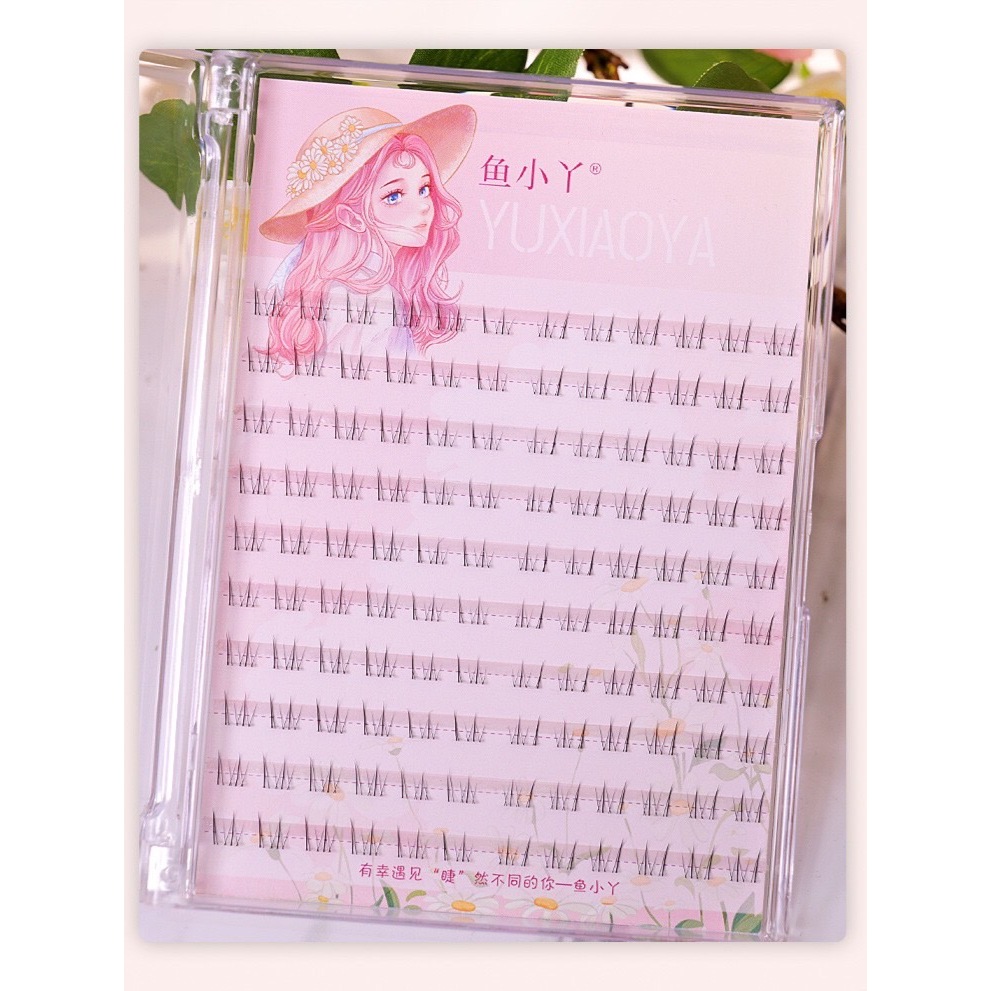 鱼小丫®
YUXIAOYA
有幸遇见“睫”然不同的你—鱼小丫